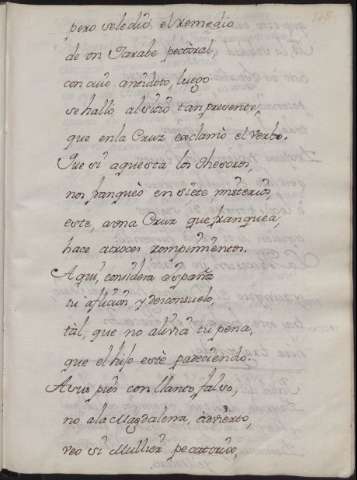 pero sele diò el remedio
de vn Jarabe pectoral,
con cuio antidoto, luego
se hallò alivio tan
que en la Cruz exclamò el Verbo.
Que si aquesta los thesoros,
nos franqueò en siete misterios,
este, a vna Cruz que franquea,
hace atroces rompimientos.
Aqui, considera
tu aflicion y desconsuelo,
tàl, que no alivia tu pena,
que el hijo estè padeciendo.
A sus pies con llanto falso,
no a la Magdalena, advierto,
veo si Mullier